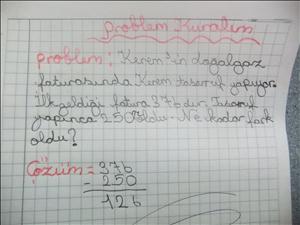 Problem Kuralım
Problem: Kerem'in doğalgaz
faturasında Kerem tasarruf yapıyor.
İlk geldiği fatura 376 dır. Tasarruf
yapınca 250 oldu. Ne kadar fark
oldu?
Çözüm = 376
- 250
126